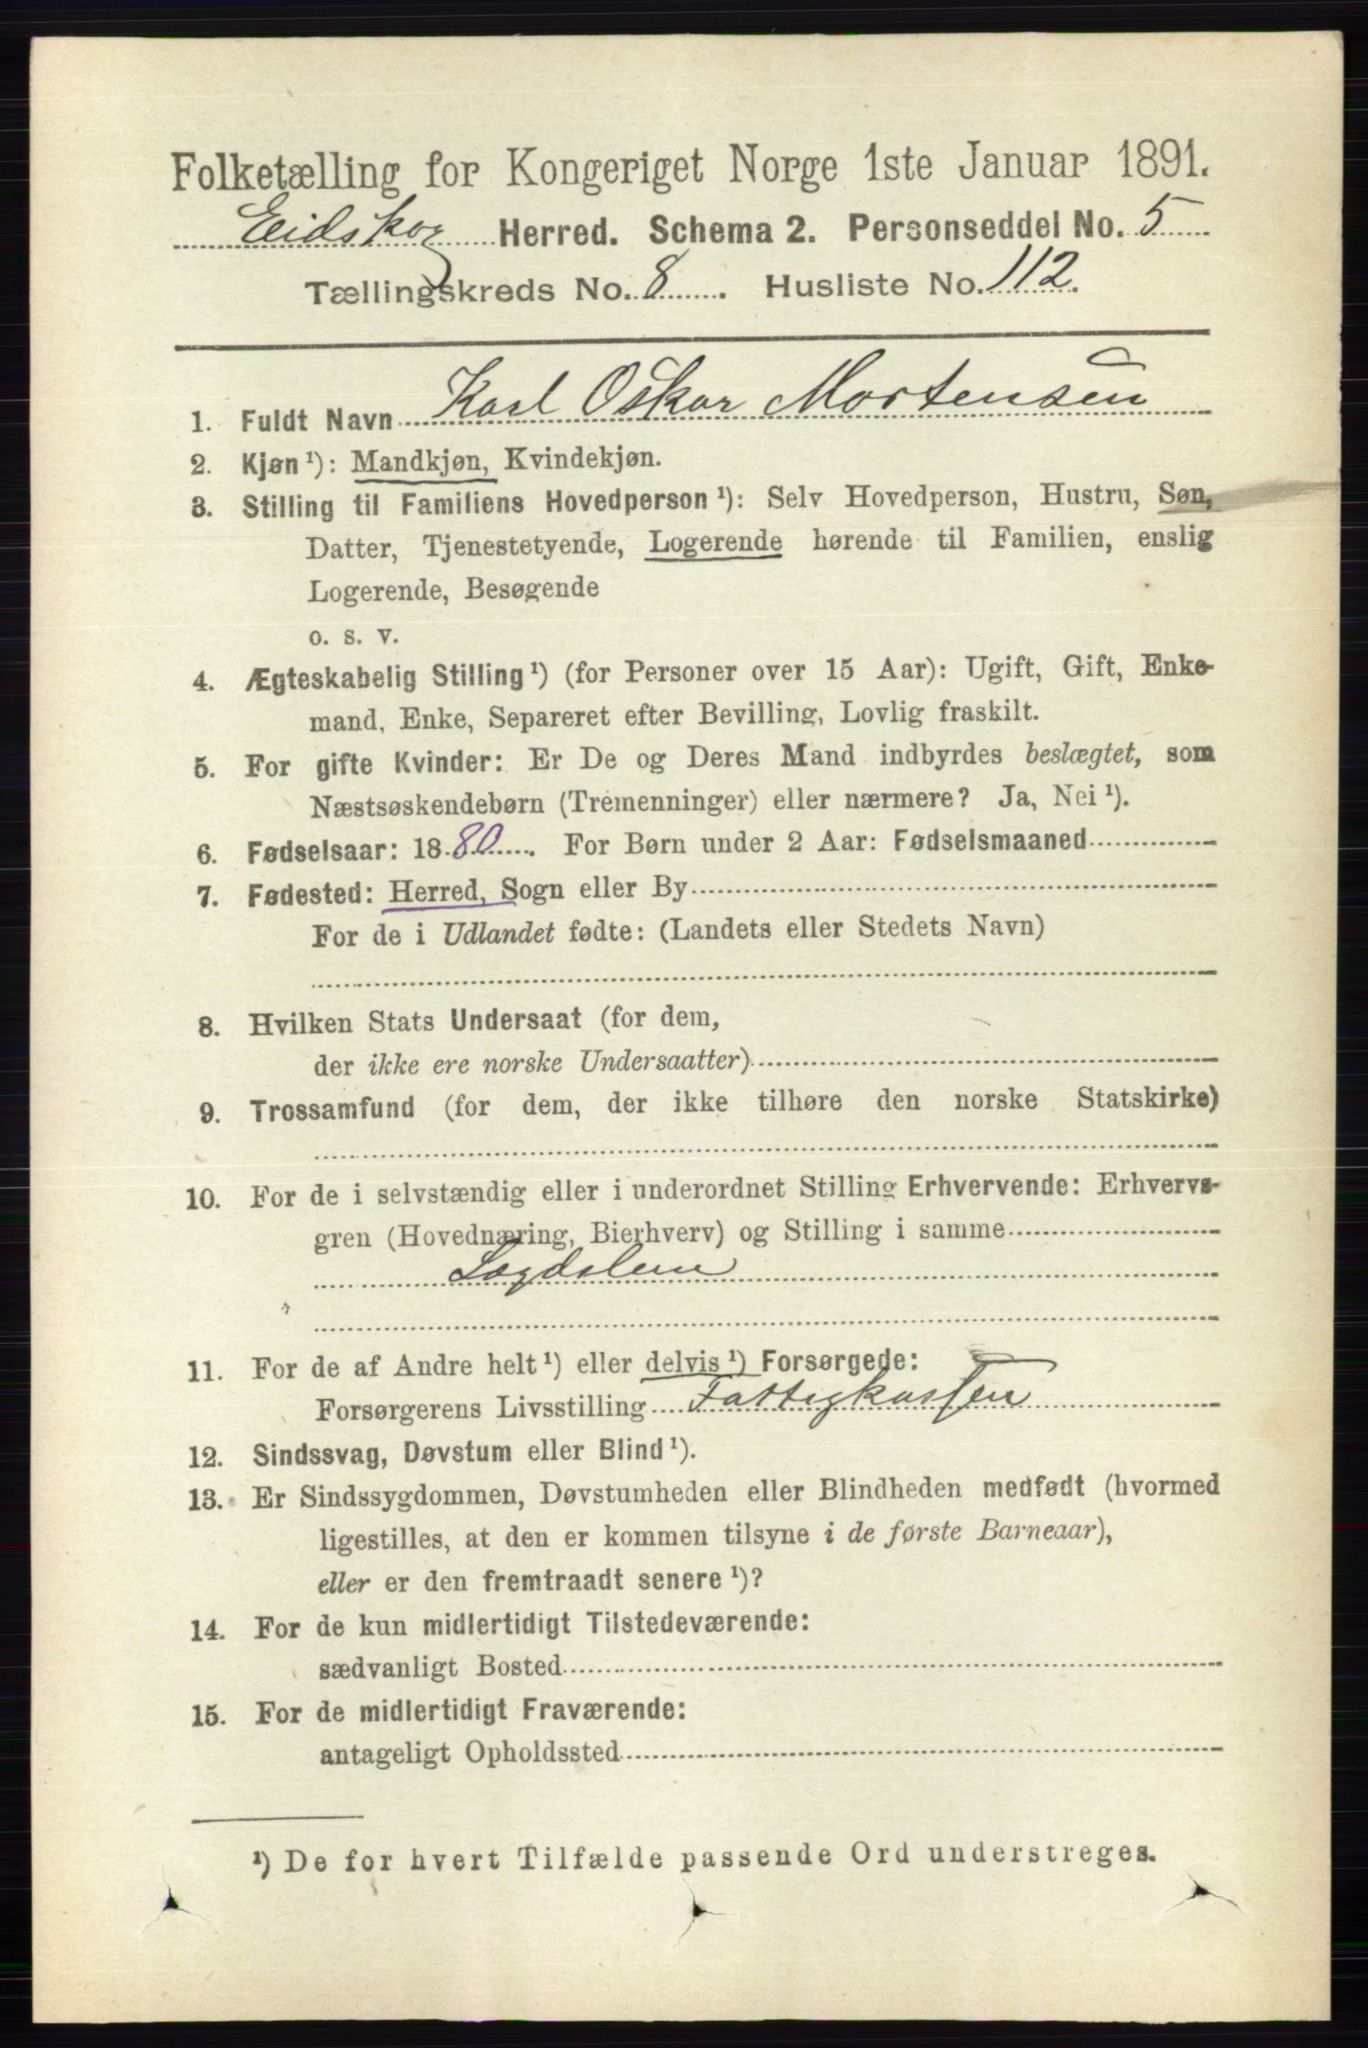 Folketælling for Kongeriget Norge 1ste Januar 1891.
Eidskog Herred. Schema 2. Personseddel No. 5
Tællingskreds No. 8. Husliste No. 112.
1. Fuldt Navn Karl Oskar Mortensen
2. Kjøn ¹): Mandkjøn, Kvindekjøn.
3. Stilling til Familiens Hovedperson ¹): Selv Hovedperson, Hustru, Søn,
Datter, Tjenestetyende, Logerende hørende til Familien, enslig
Logerende, Besøgende
o. s. v.
4. Ægteskabelig Stilling ¹) (for Personer over 15 Aar): Ugift, Gift, Enke-
mand, Enke, Separeret efter Bevilling, Lovlig fraskilt.
5. For gifte Kvinder: Er De og Deres Mand indbyrdes beslægtet, som
Næstsøskendebørn (Tremenninger) eller nærmere? Ja, Nei ¹).
6. Fødselsaar: 1880. For Børn under 2 Aar: Fødselsmaaned
7. Fødested: Herred, Sogn eller By
For de i Udlandet fødte: (Landets eller Stedets Navn)
8. Hvilken Stats Undersaat (for dem,
der ikke ere norske Undersaatter)
9. Trossamfund (for dem, der ikke tilhøre den norske Statskirke)
10. For de i selvstændig eller i underordnet Stilling Erhvervende: Erhvervs-
gren (Hovednæring, Bierhverv) og Stilling i samme
Lægdslem
11. For de af Andre helt ¹) eller delvis ¹) Forsørgede:
Forsørgerens Livsstilling Fattigkassen
12. Sindssvag, Døvstum eller Blind ¹).
13. Er Sindssygdommen, Døvstumheden eller Blindheden medfødt (hvormed
ligestilles, at den er kommen tilsyne i de første Barneaar),
eller er den fremtraadt senere ¹)?
14. For de kun midlertidigt Tilstedeværende:
sædvanligt Bosted
15. For de midlertidigt Fraværende:
antageligt Opholdssted
¹) De for hvert Tilfælde passende Ord understreges.